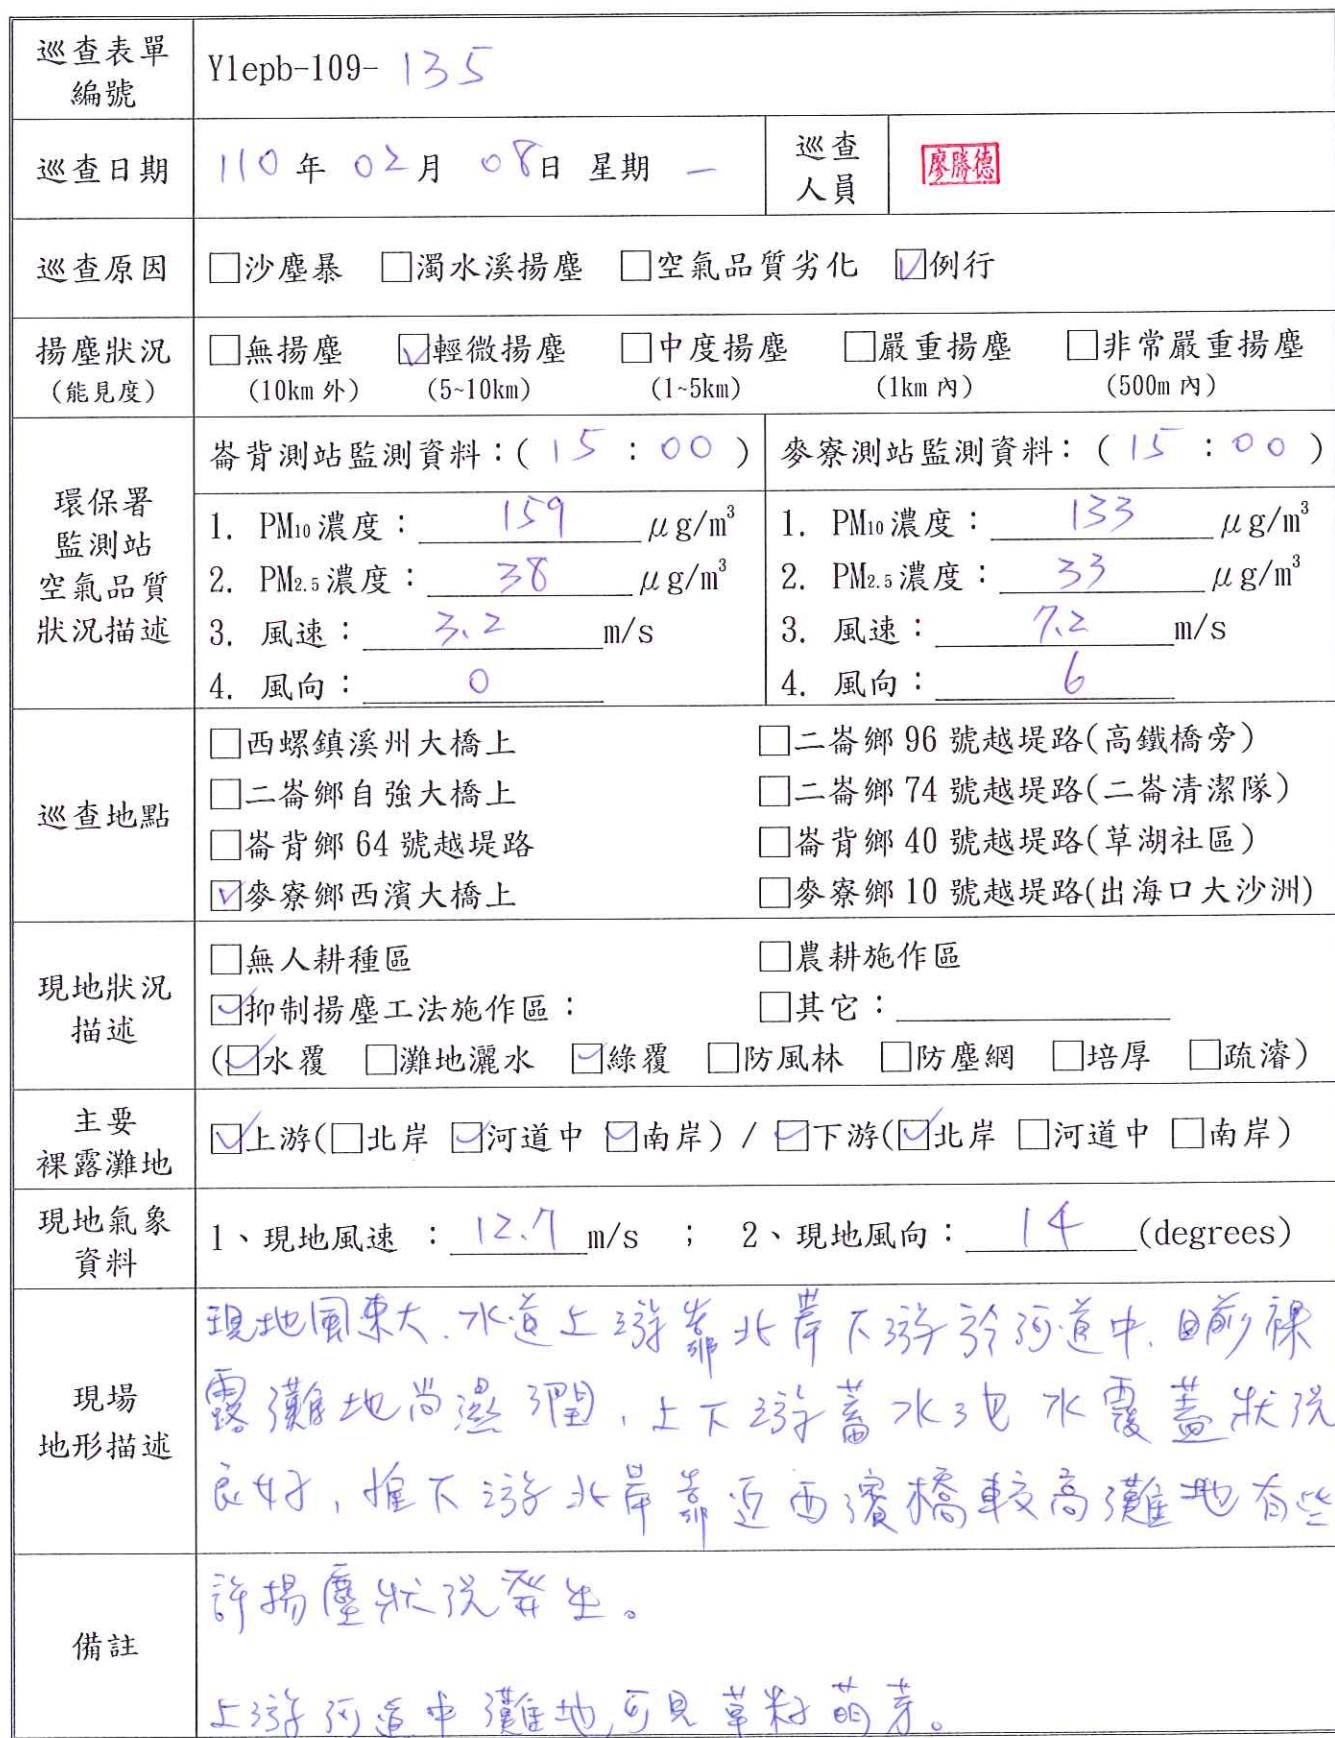 巡查表單
編號
Ylepb-109- 135
巡查日期
110 年 02 月 08 日 星期 一
巡查
人員
廖勝德
巡查原因
□沙塵暴 □濁水溪揚塵 □空氣品質劣化 ☑例行
揚塵狀況
(能見度)
□無揚塵 ☑輕微揚塵 □中度揚塵 □嚴重揚塵 □非常嚴重揚塵
(10km 外) (5~10km) (1~5km) (1km 內) (500m 內)
環保署
監測站
空氣品質
狀況描述
崙背測站監測資料：( 15 : 00 )
1. PM10 濃度： 159 μg/m³
2. PM2.5 濃度： 38 μg/m³
3. 風速： 3.2 m/s
4. 風向： 0
麥寮測站監測資料：( 15 : 00 )
1. PM10 濃度： 133 μg/m³
2. PM2.5 濃度： 33 μg/m³
3. 風速： 7.2 m/s
4. 風向： 6
巡查地點
□西螺鎮溪州大橋上 □二崙鄉 96 號越堤路(高鐵橋旁)
□二崙鄉自強大橋上 □二崙鄉 74 號越堤路(二崙清潔隊)
□崙背鄉 64 號越堤路 □崙背鄉 40 號越堤路(草湖社區)
☑麥寮鄉西濱大橋上 □麥寮鄉 10 號越堤路(出海口大沙洲)
現地狀況
描述
□無人耕種區 □農耕施作區
☑抑制揚塵工法施作區： □其它：
(☑水覆 □灘地灑水 ☑綠覆 □防風林 □防塵網 □培厚 □疏濬)
主要
裸露灘地
☑上游(□北岸 ☑河道中 ☑南岸) / ☑下游(☑北岸 □河道中 □南岸)
現地氣象
資料
1、現地風速 ： 12.7 m/s ； 2、現地風向： 14 (degrees)
現場
地形描述
現地風速大.水道上游靠北岸下游於河道中.目前裸
露灘地尚濕潤，上下游蓄水池水覆蓋狀況
良好，惟下游北岸靠近西濱橋較高灘地有些
備註
許揚塵狀況發生。
上游河道中灘地,可見草籽萌芽。